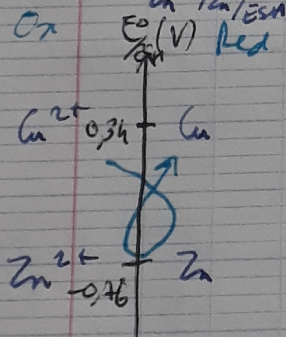 Zn/ESH
Ox E° (V) Red
/ESH
Cu²⁺ 0,34 Cu
Zn²⁺ Zn
-0,76